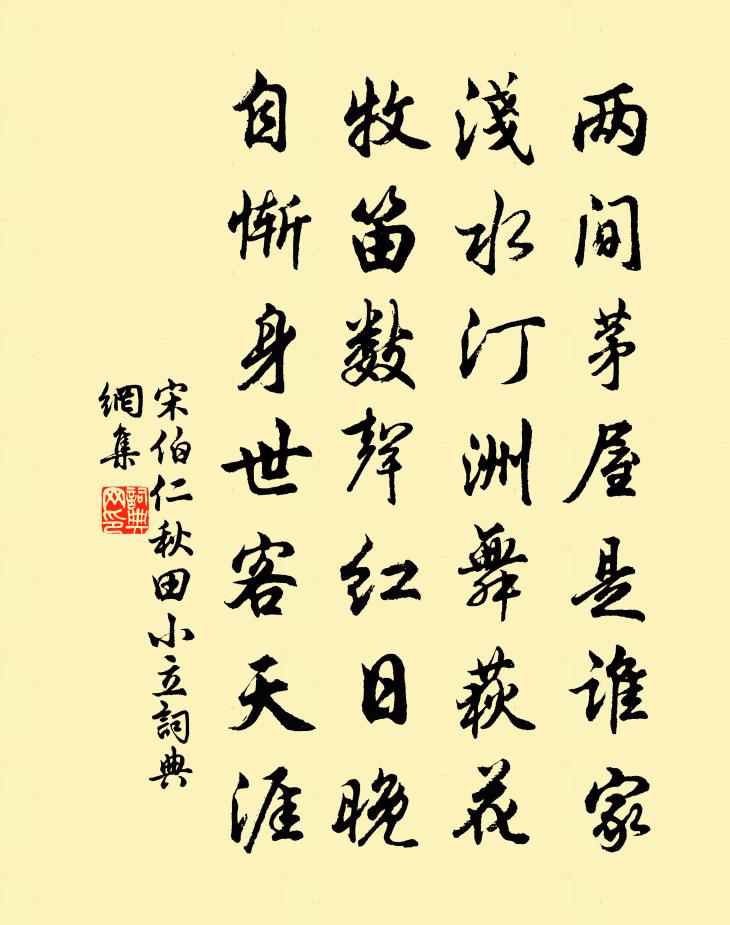 两间茅屋是谁家
淺水汀洲舞荻花
牧笛数聲红日晚
自惭身世客天涯
宋伯仁秋田小立詞典
網集
詞典網印